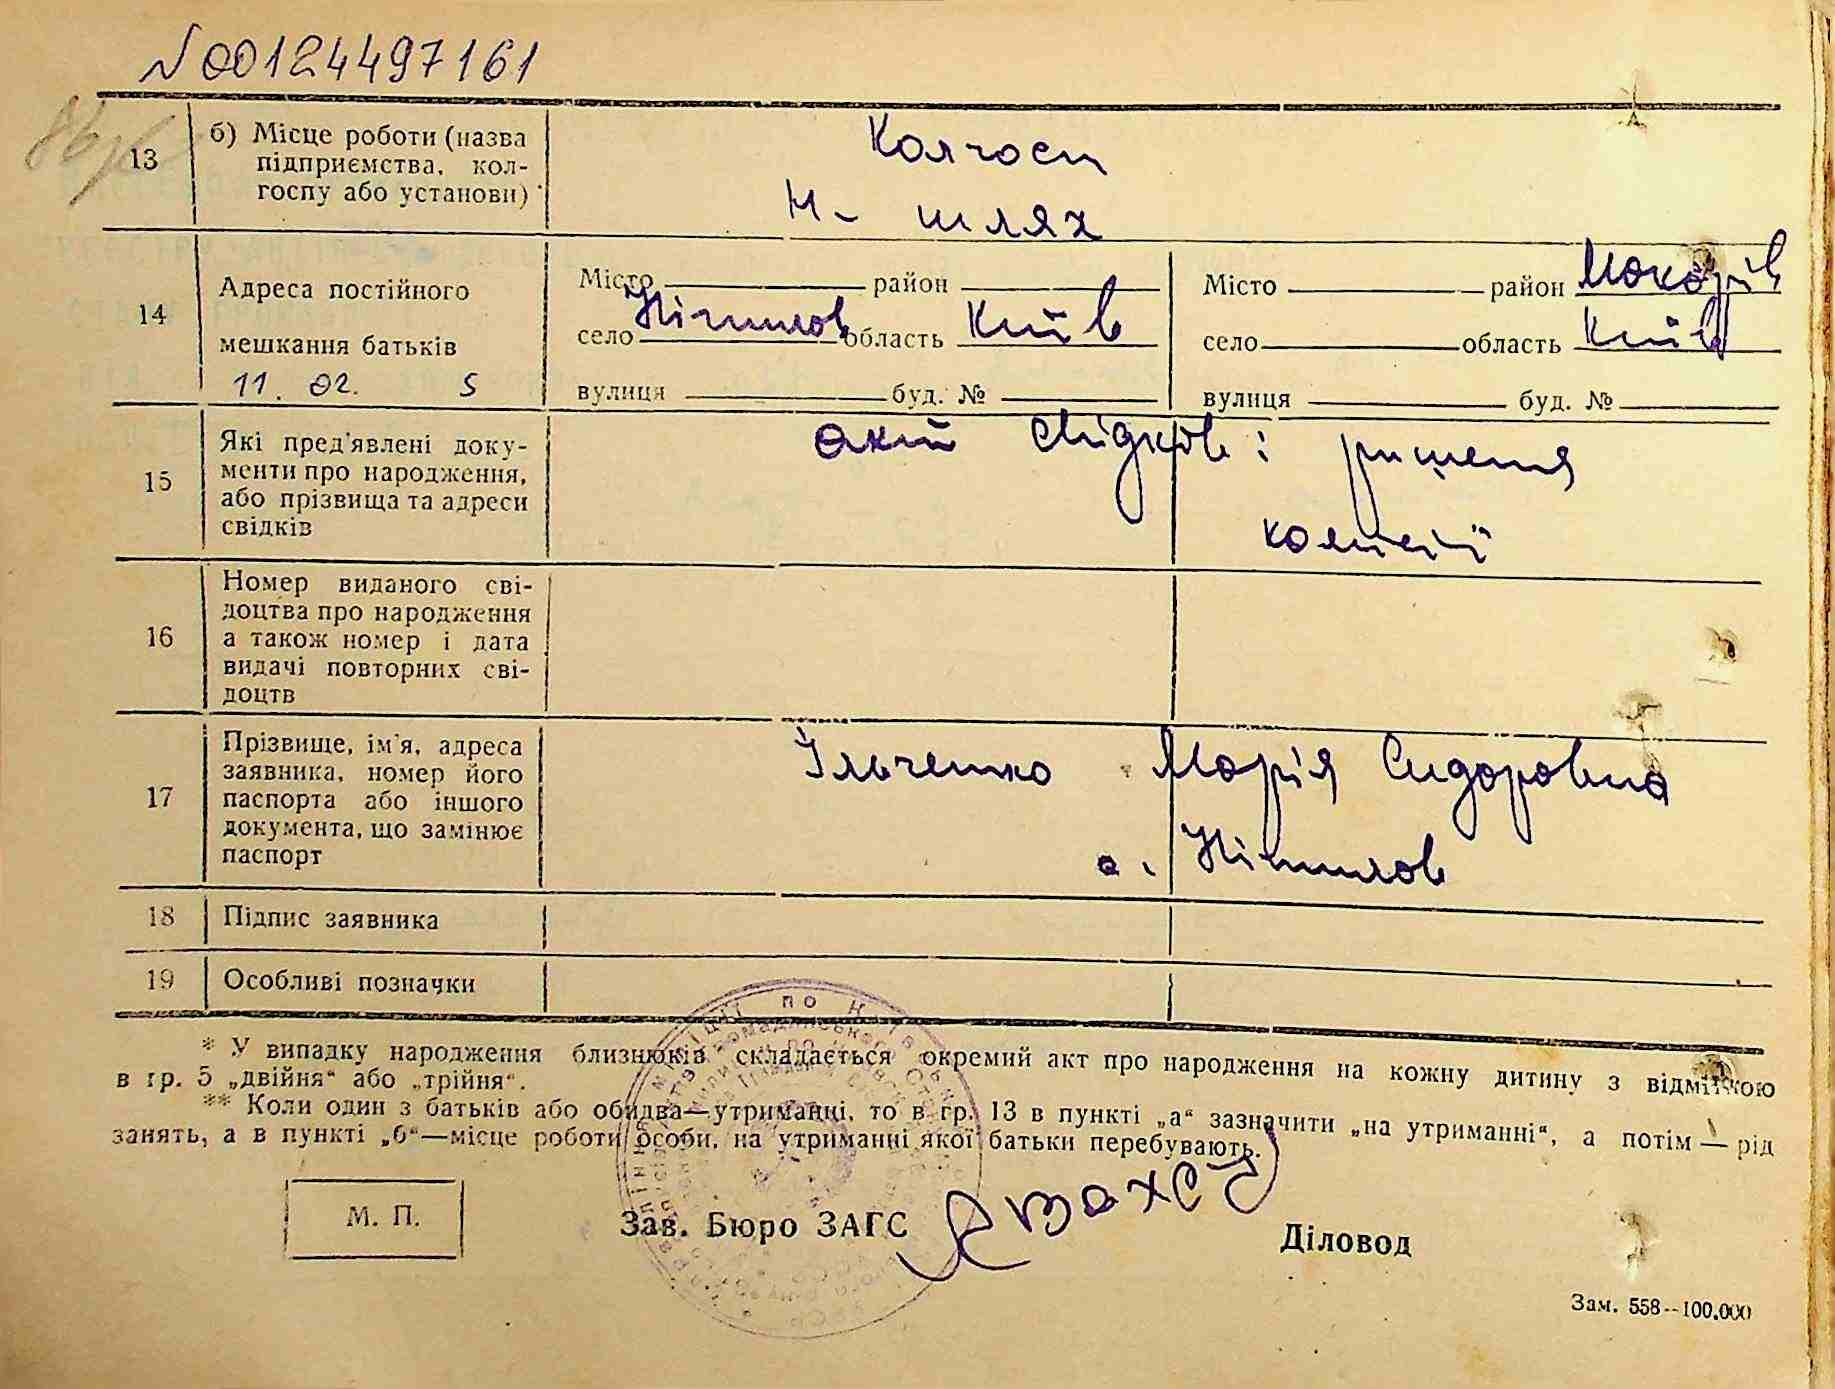 N00124497161
13
б) Місце роботи (назва
підприємства, кол-
госпу або установи)
Колгосп
Н- шлях
14
Адреса постійного
мешкання батьків
11. 02. 5
Місто район
село Ніжилов область Київ
вулиця буд. №
Місто район Макарів
село область Київ
вулиця буд. №
15
Які пред'явлені доку-
менти про народження,
або прізвища та адреси
свідків
акт свідків і рішення
комісії
16
Номер виданого сві-
доцтва про народження
а також номер і дата
видачі повторних сві-
доцтв
17
Прізвище, ім'я, адреса
заявника, номер його
паспорта або іншого
документа, що замінює
паспорт
Ільченко Марія Сидоровна
с.
18
Підпис заявника
19
Особливі позначки
* У випадку народження близнюків складається окремий акт про народження на кожну дитину з відміткою
в гр. 5 „двійня“ або „трійня“.
** Коли один з батьків або обидва—утриманці, то в гр. 13 в пункті „а“ зазначити „на утриманні“, а потім — рід
занять, а в пункті „б“—місце роботи особи, на утриманні якої батьки перебувають.
М. П.
Зав. Бюро ЗАГС
Діловод
Зам. 558--100.000